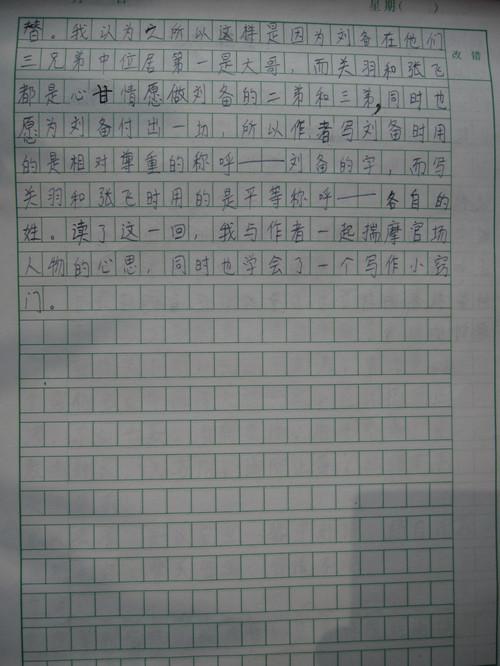 星期( )
改错
替。我认为之所以这样是因为刘备在他们
三兄弟中位居第一是大哥，而关羽和张飞
都是心甘情愿做刘备的二弟和三弟，同时也
愿为刘备付出一切，所以作者写刘备时用
的是相对尊重的称呼——刘备的字，而写
关羽和张飞时用的是平等称呼——各自的
姓。读了这一回，我与作者一起揣摩官场
人物的心思，同时也学会了一个写作小窍
门。